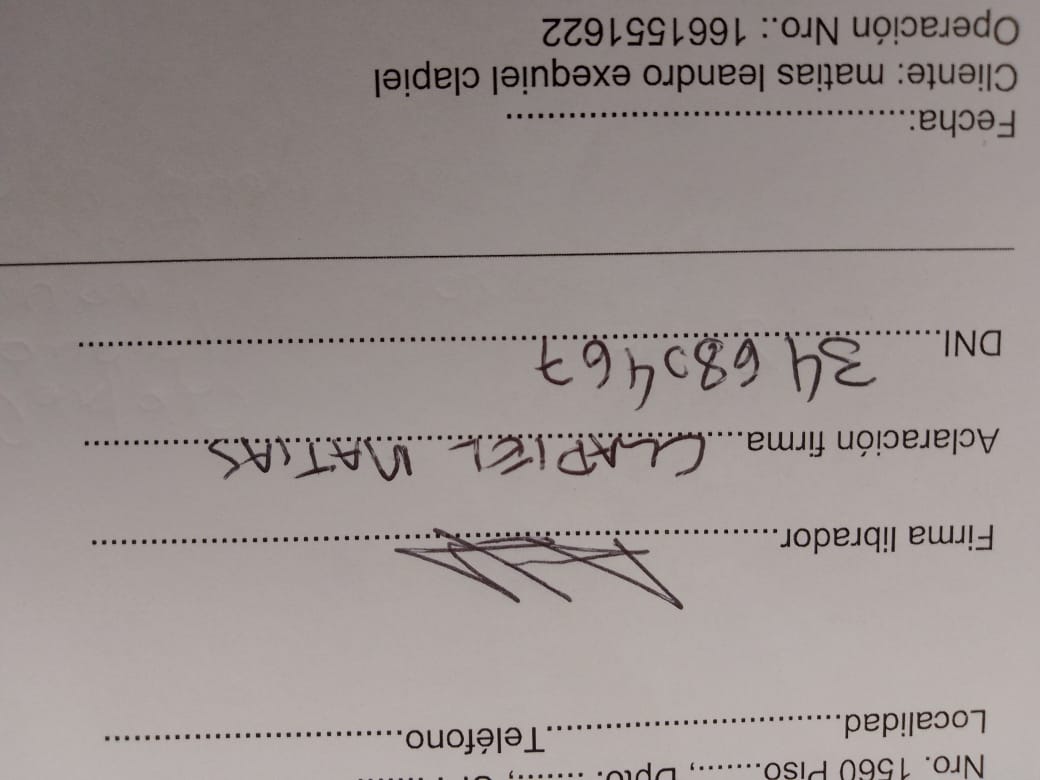 Nro. 1560 Piso......., Dpto. .......,
Localidad..............................Teléfono..............................
Firma librador......................................................................
Aclaración firma CLAPIEL MATIAS
DNI 34 680 467
Fecha:..........................................
Cliente: matias leandro exequiel clapiel
Operación Nro.: 1661551622